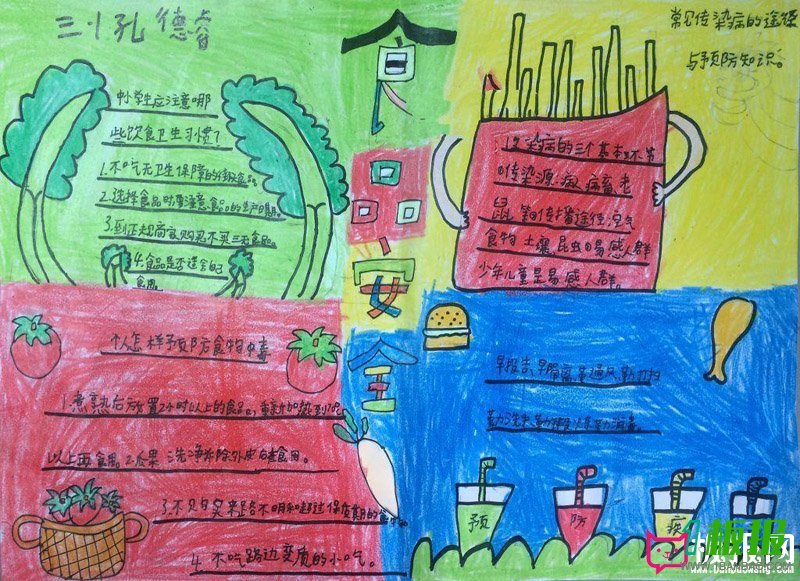 三小孔德睿
食品安全
常见传染病的途径
与预防知识。
中小学生应注意哪
些饮食卫生习惯？
1.不吃无卫生保障的街头食品。
2.选择食品时要注意食品的生产日期。
3.到正规商家购买不买三无食品。
4.食品是否适合自己
食用。
传染病的三个基本环节
传染源:病人病畜老
鼠 等传播途径:空气
食物 土壤 昆虫 易感人群
少年儿童是易感人群。
个人怎样预防食物中毒
1.煮熟后放置2小时以上的食品，重新加热到70℃
以上再食用。2.瓜果 洗净并除外皮后在食用。
3.不贝勾买来路不明和超过保质期的食
4. 不吃路边变质的小吃。
早报告、早隔离、常通风、勤打扫
勤洗
预
防
疾
板报网
www.banbaowang.com